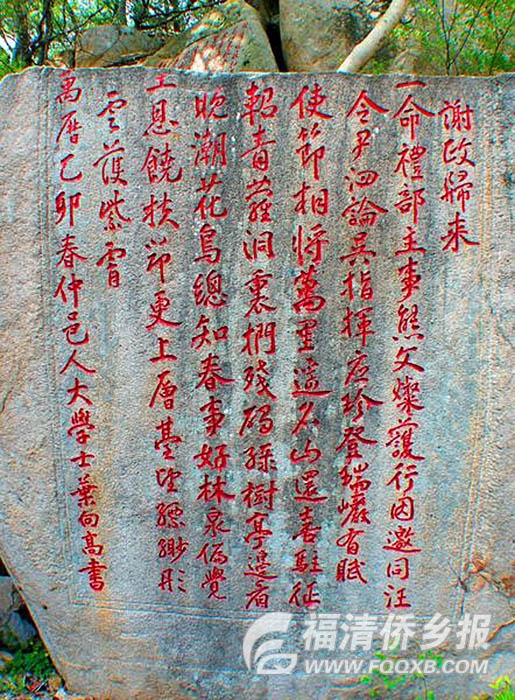 謝政歸来
一命禮部主事熊文燦護行因邀同汪
令尹泗論吳指揮应珍登瑞巖有賦
使節相將萬里遥名山還喜駐征
軺青蘿洞裏捫殘碣綠樹亭邊看
晚潮花鳥總知春事好林泉偏覺
主恩饒扶筇更上層臺望縹緲彤
雲護紫霄
萬曆乙卯春仲邑人大學士葉向高書
福清侨乡报
WWW.FQQXB.COM